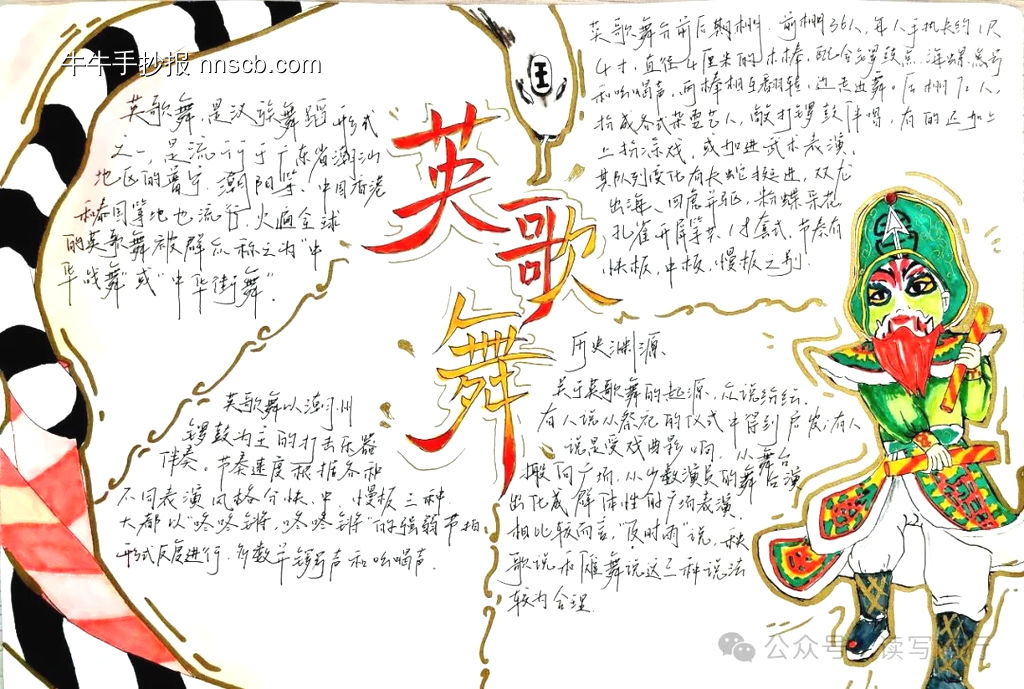 牛牛手抄报 nnscb.com
英歌舞
英歌舞，是汉族舞蹈形式
之一，是流行于广东省潮汕
地区的普宁、潮阳等，中国香港
和泰国等地也流行。火遍全球
的英歌舞被群众称之为“中
华战舞”或“中华街舞”
英歌舞分前后期棚，前棚36人，每人手执长约1尺
4寸，直径4厘米的木棒，配合锣鼓点、海螺号
和吆喝声，两棒相互翻转，边走边舞。后棚72人，
扮成各式杂耍艺人，敲打锣鼓伴唱，有的还加上
上扮涂戏，或加进武术表演，
其队列变化有长蛇挺进，双龙
出海、四虎并驱，粉蝶采花
孔雀开屏等共，1才套式，节奏有
快板，中板，慢板之别。
英歌舞以潮州
锣鼓为主的打击乐器
伴奏，节奏速度根据各种
不同表演风格分快、中、慢板三种，
大都以“咚咚锵，咚咚锵”的强弱节拍
形式反复进行，多数于锣声和吆喝声。
历史渊源、
关于英歌舞的起源，众说纷纭，
有人说从祭祀的仪式中得到启发；有人
说是受戏曲影响，从舞台
搬向广场，从少数演员的舞台演
出化成群体性的广场表演
相比较而言，“及时雨”说，秧
歌说和傩舞说这三种说法
较为合理.
公众号·读写